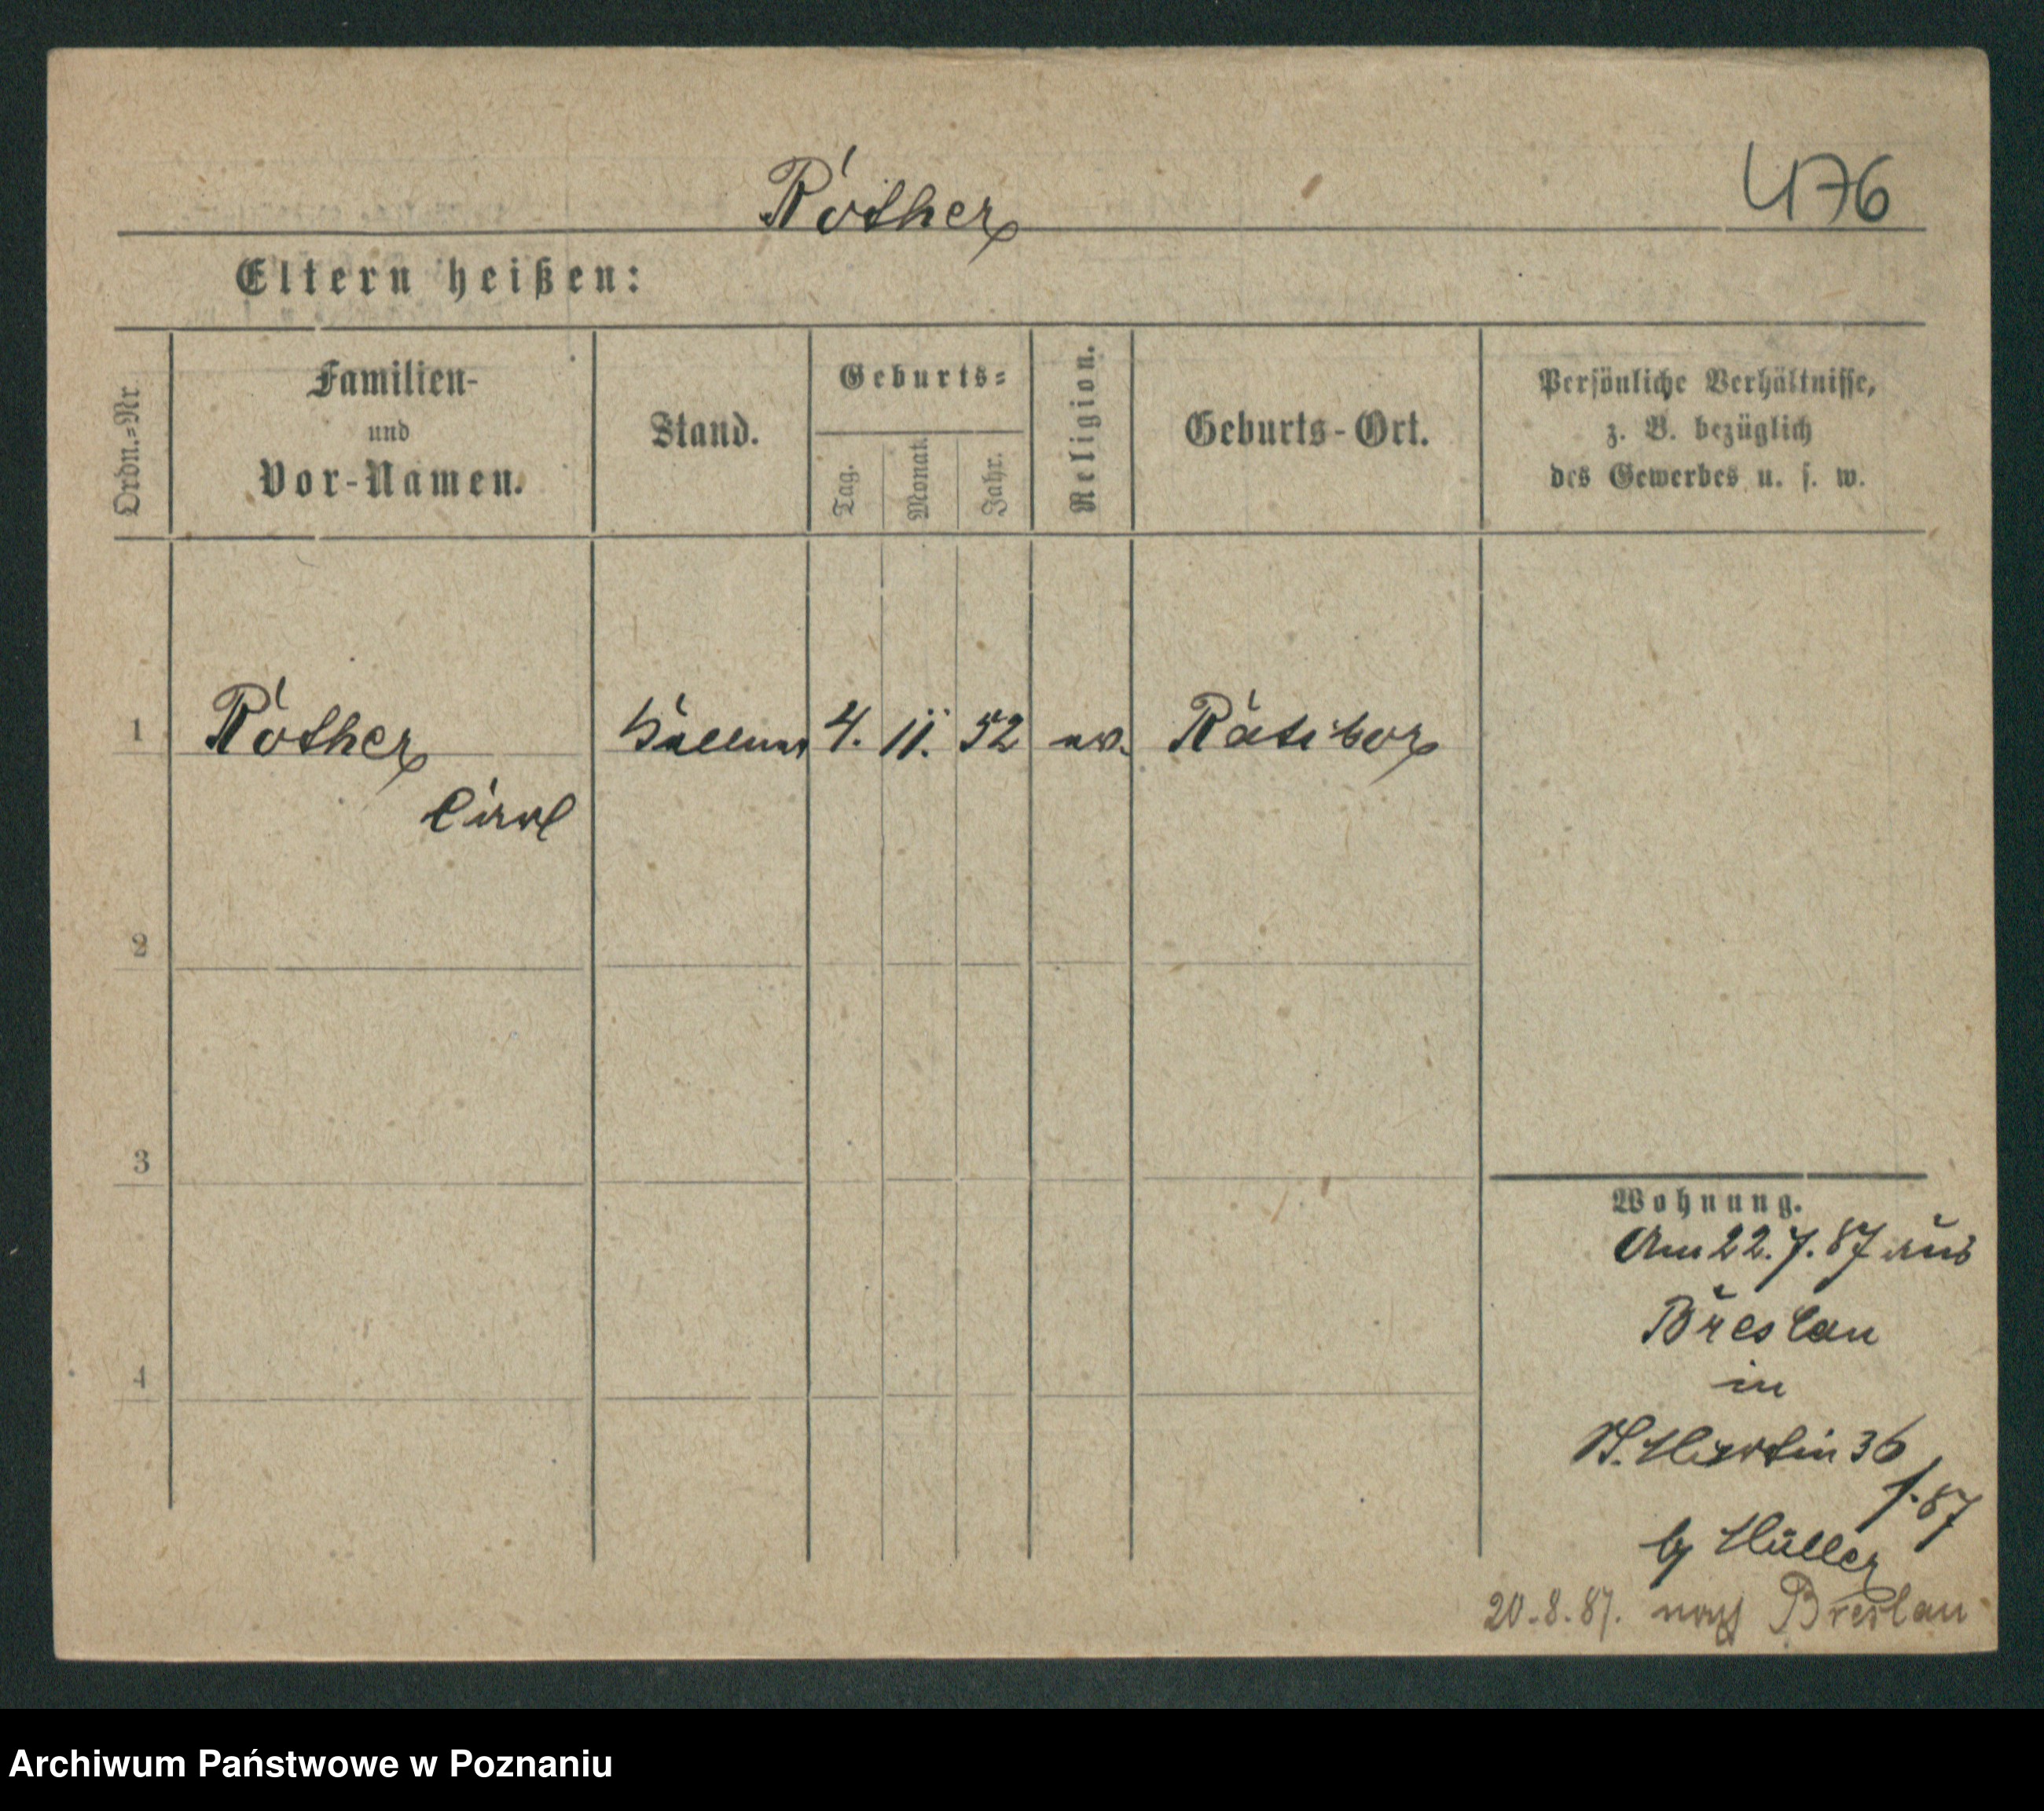 Rother
476
Eltern heißen:
Ordn.=Nr
Familien-
und
Vor-Namen.
Stand.
Geburts=
Tag.
Monat.
Jahr.
Religion.
Geburts-Ort.
Persönliche Verhältnisse,
z. B. bezüglich
des Gewerbes u. s. w.
1
Rother
Carl
Kellner
4.
11.
52
ev.
Ratibor
2
3
4
Wohnung.
Am 22.7.87 aus
Breslau
in
St. Martin 36
f. 87
by Müller
20.8.87. nach Breslau
Archiwum Państwowe w Poznaniu